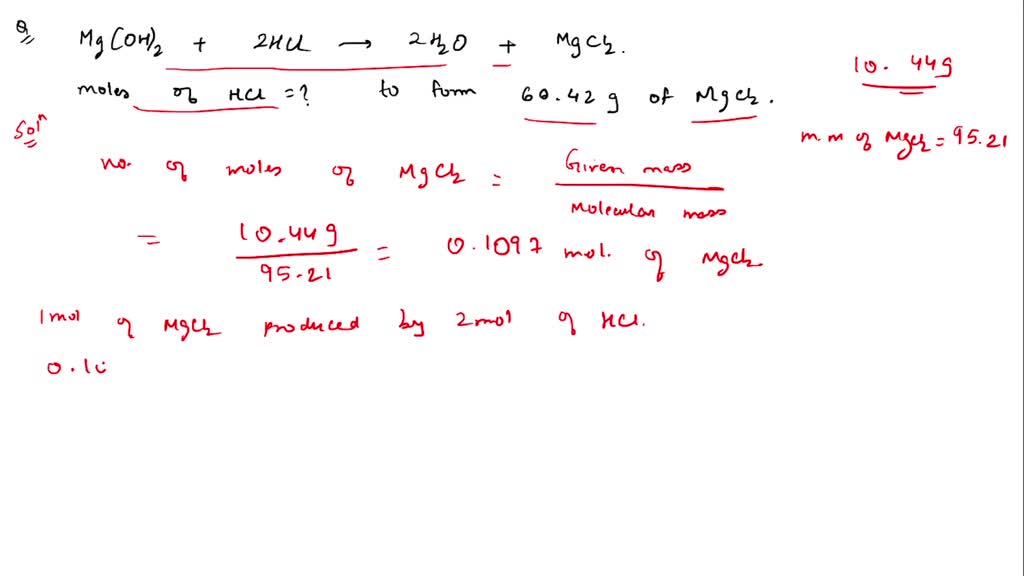 Q
Mg(OH)2 + 2HCl → 2H2O + MgCl2.
moles of HCl = ? to form 60.42 g of MgCl2.
10.44g
m.m of MgCl2 = 95.21
Soln
no. of moles of MgCl2 = Given mass / Molecular mass
= 10.44g / 95.21 = 0.1097 mol. of MgCl2
1 mol of MgCl2 produced by 2 mol of HCl.
0.10